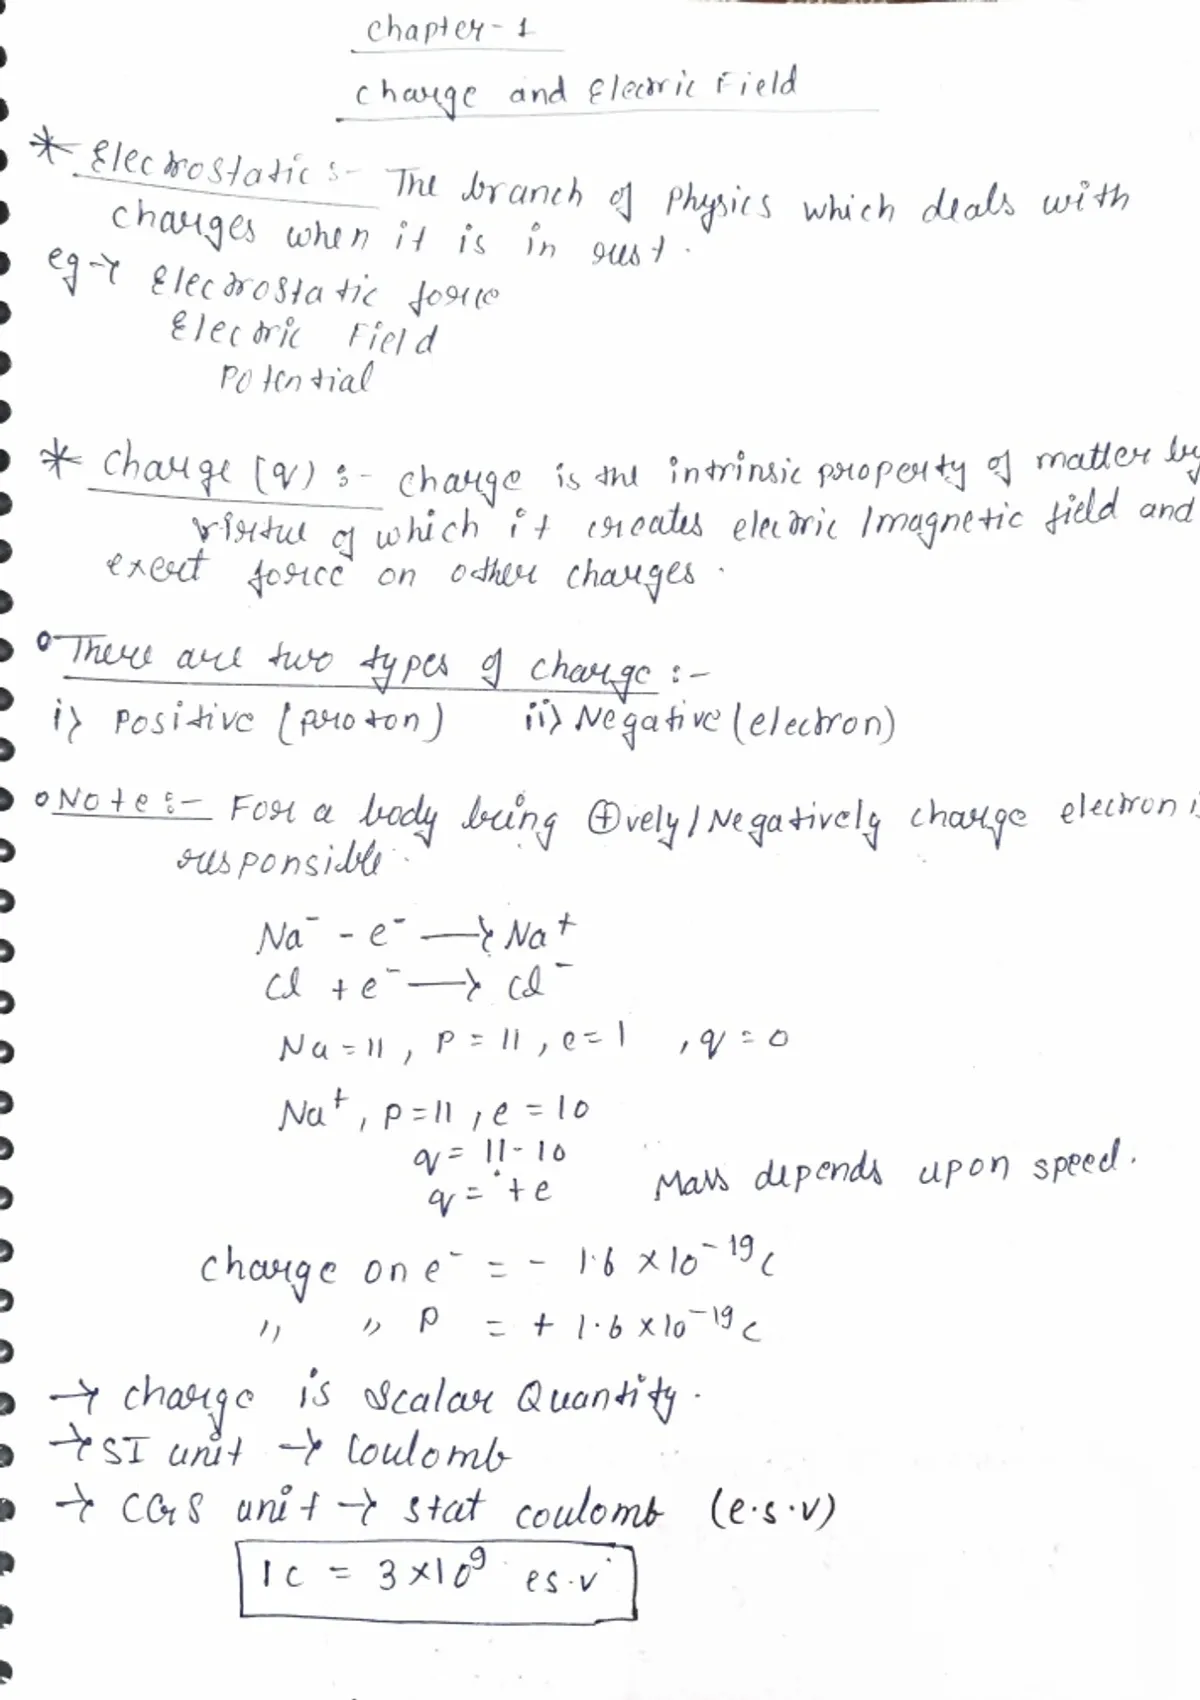 Chapter-1
Charge and Electric Field
* Electrostatic :- The branch of Physics which deals with
charges when it is in rest.
eg → Electrostatic force
Electric Field
Potential
* Charge (q) :- charge is the intrinsic property of matter by
virtue of which it creates electric/magnetic field and
exert force on other charges.
° There are two types of charge :-
i) Positive (proton) ii) Negative (electron)
° Note :- For a body being ⊕vely/Negatively charge electron is
responsible.
Na⁻ - e⁻ → Na⁺
Cl + e⁻ → Cl⁻
Na = 11, P = 11, e = 1 , q = 0
Na⁺, p = 11, e = 10
q = 11-10
q = +e Mass depends upon speed.
charge on e⁻ = - 1.6 × 10⁻¹⁹ C
" " P = + 1.6 × 10⁻¹⁹ C
→ charge is Scalar Quantity.
→ SI unit → Coulomb
→ CGS unit → stat coulomb (e.s.v)
1 C = 3 × 10⁹ es.v